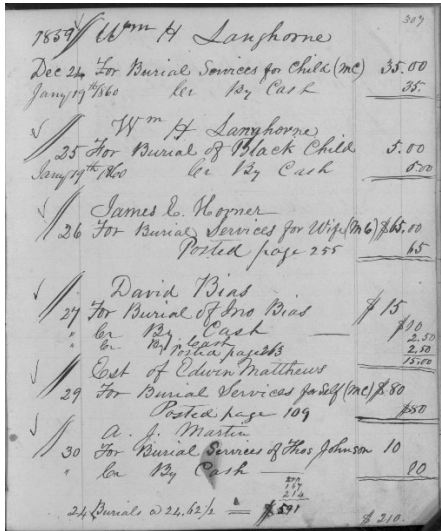 309
1859 Wm H Langhorne
Dec 24 For Burial Services for Child (MC) 35.00
Jany 19th 1860 Cr By Cash 35.
Wm H Langhorne
25 For Burial of Black Child 5.00
Jany 19th 1860 Cr By Cash 5.00
James E. Horner
26 For Burial Services for Wife (M6) $65.00
Posted page 255 65
David Bias
27 For Burial of Jno Bias $15
" Cr By Cash $10
" Cr By Cash 2.50
Posted page 263 2.50
15.00
Est of Edwin Matthews
29 For Burial Services for Self (MC) $80
Posted page 109 $80
A. J. Martin
30 For Burial Services of Thos Johnson 10
" Cr By Cash 10
167
214
24 Burials @ 24.62/2 = $591
$210.